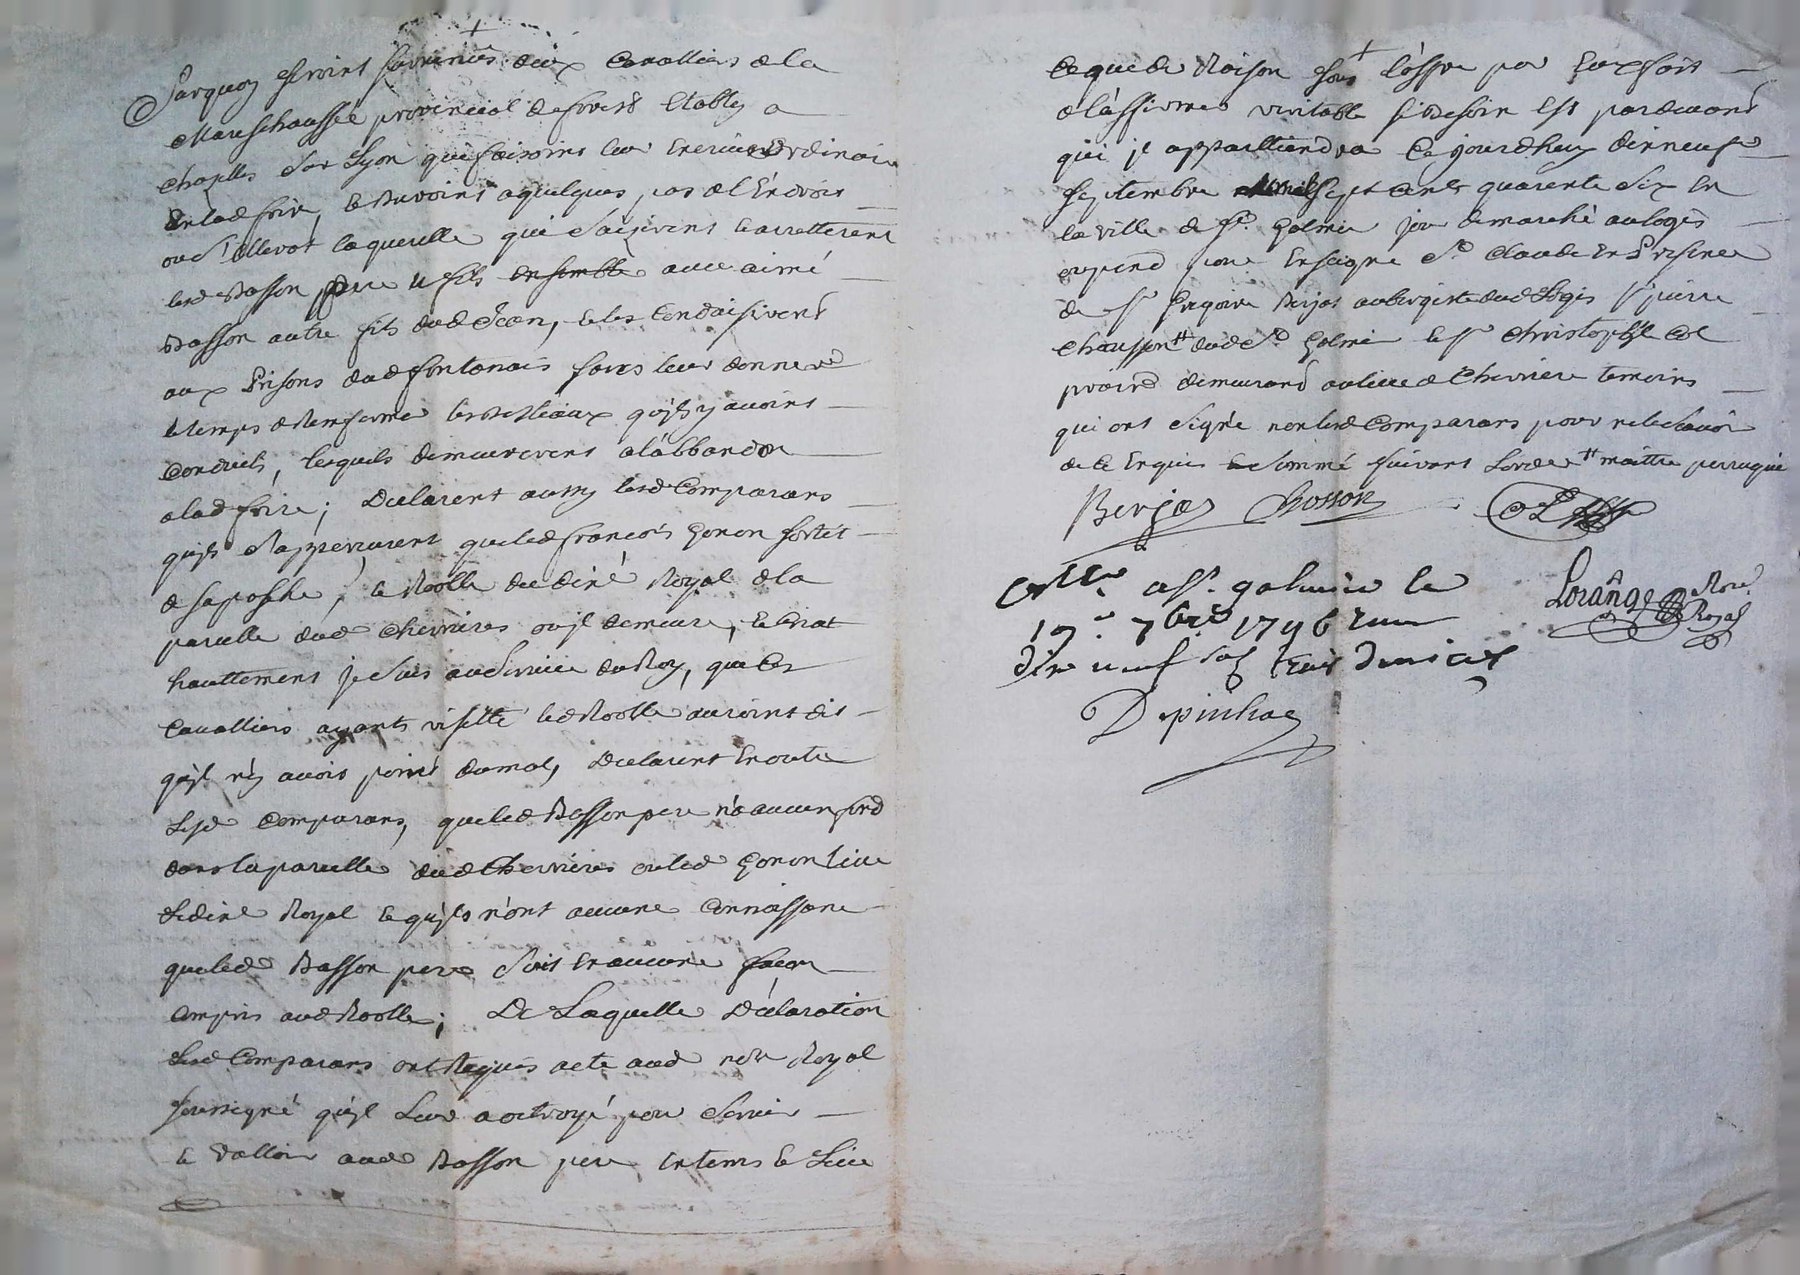 Surquoy seroint survenus deux Cavalliers de la
Mareschaussée provincial de forest Etablis a
Chazelles sur Lyon qui faisoint leur Exercice ordinaire
En lad foire, et Auroint a quelques pas de l'Endroit
ou s'Ellevat la querelle qui saisirent et arretterent
lesd Basson pere et fils ensemble avec aimé
Basson autre fils dud Jean, et les Conduisirent
aux Prisons dud fontanais sans leur donner
le temps de Renfermer les Bestiaux qu'jls y avoint
Conduits, lesquels demeurerent a l'abbandon
a lad foire; Declarent aussy lesd Comparans
qu'jls s'apperceurent que led françois Gonon sortit
de sa poshe, le Roolle du dixé Royal de la
parcelle dud Chevrieres ou jl demeure, et Criat
hauttement je suis au Service du Roy, que les
Cavalliers ayants visitté led Roolle auroint dit
qu'jl n'y avoit point de mal, Declarent En outre
Lesd Comparans, que led Basson pere n'a aucun fond
dans la parcelle dud Chevrieres ou led Gonon Leve
Le dixé Royal et qu'jls n'ont aucune Connaissance
que led Basson pere soit En aucune façon
Compris aud Roolle; De Laquelle Déclaration
Lesd Comparans ont Requis acte aud nore Royal
soussigné qu'jl Leur a octroyé pour servir
et valloir aud Basson pere En tems et Lieu
Ce que de Raison sous l'offre par Eux fait
de l'affirmer veritable si Besoin Est pardevant
qui jl appartiendra Ce jourdhuy dixneufe
septembre mil sept Cents quarente six En
la ville de St. Galmier jour de marché au logis
ou pend pour Enseigne St. Claude En Presence
de Sr Gregoire Berjat aubergiste dud Logis Sr pierre
Chausson tt dud St Galmier et Sr Christophle Col
praird demeurand au lieu de Chevriere temoins
qui ont signé non lesd Comparans pour ne le sçavoir
de ce Enquis et sommé suivant L'orde tt maitre perruquier
Berjat Chosson Col
Lorange Nore. Royal
Contlle a St. galmier le
19e 7bre 1746 Reçu
dix neuf sols trois deniers
Depinhac